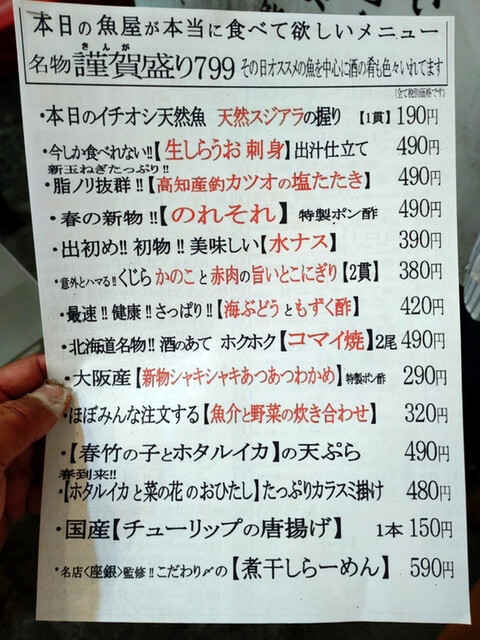 本日の魚屋が本当に食べて欲しいメニュー
きんが
名物 謹賀盛り799 その日オススメの魚を中心に酒の肴も色々いれてます
(全て税別価格です)
・本日のイチオシ天然魚 天然スジアラの握り 【1貫】190円
・今しか食べれない!!【生しらうお 刺身】出汁仕立て 490円
新玉ねぎたっぷり!!
・脂ノリ抜群!!【高知産釣カツオの塩たたき】 490円
・春の新物!!【のれそれ】特製ポン酢 490円
・出初め!! 初物!! 美味しい【水ナス】 390円
・意外とハマる!! くじら かのこ と 赤肉の旨いとこにぎり【2貫】 380円
・最速!! 健康!! さっぱり!!【海ぶどう と もずく酢】 420円
・北海道名物!! 酒のあて ホクホク【コマイ焼】2尾 490円
・大阪産【新物シャキシャキあつあつわかめ】特製ポン酢 290円
・ほぼみんな注文する【魚介と野菜の炊き合わせ】 320円
・【春竹の子とホタルイカ】の天ぷら 490円
春到来!!
・【ホタルイカ と 菜の花 のおひたし】たっぷりカラスミ掛け 480円
・国産【チューリップの唐揚げ】 1本 150円
・名店〈座銀〉監修!! こだわり〆の【煮干しらーめん】 590円